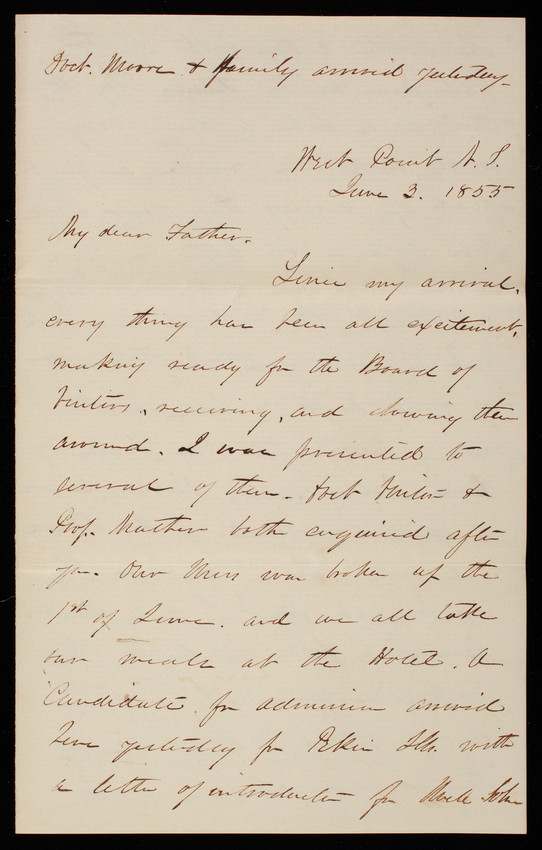 Doct. Moore & family arrived yesterday_
West Point N.Y.
June 3. 1855
My dear Father.
Since my arrival,
every thing has been all excitement,
making ready for the Board of
Visitors, receiving, and showing them
around. I was presented to
several of them. Doct & 
Prof. Mather both enquired after
you. Our Mess was broken up the
1st of June. and we all take
our meals at the Hotel. A
Candidate for admission arrived
here yesterday fr Pekin Ills. with
a letter of introduction fr Uncle John